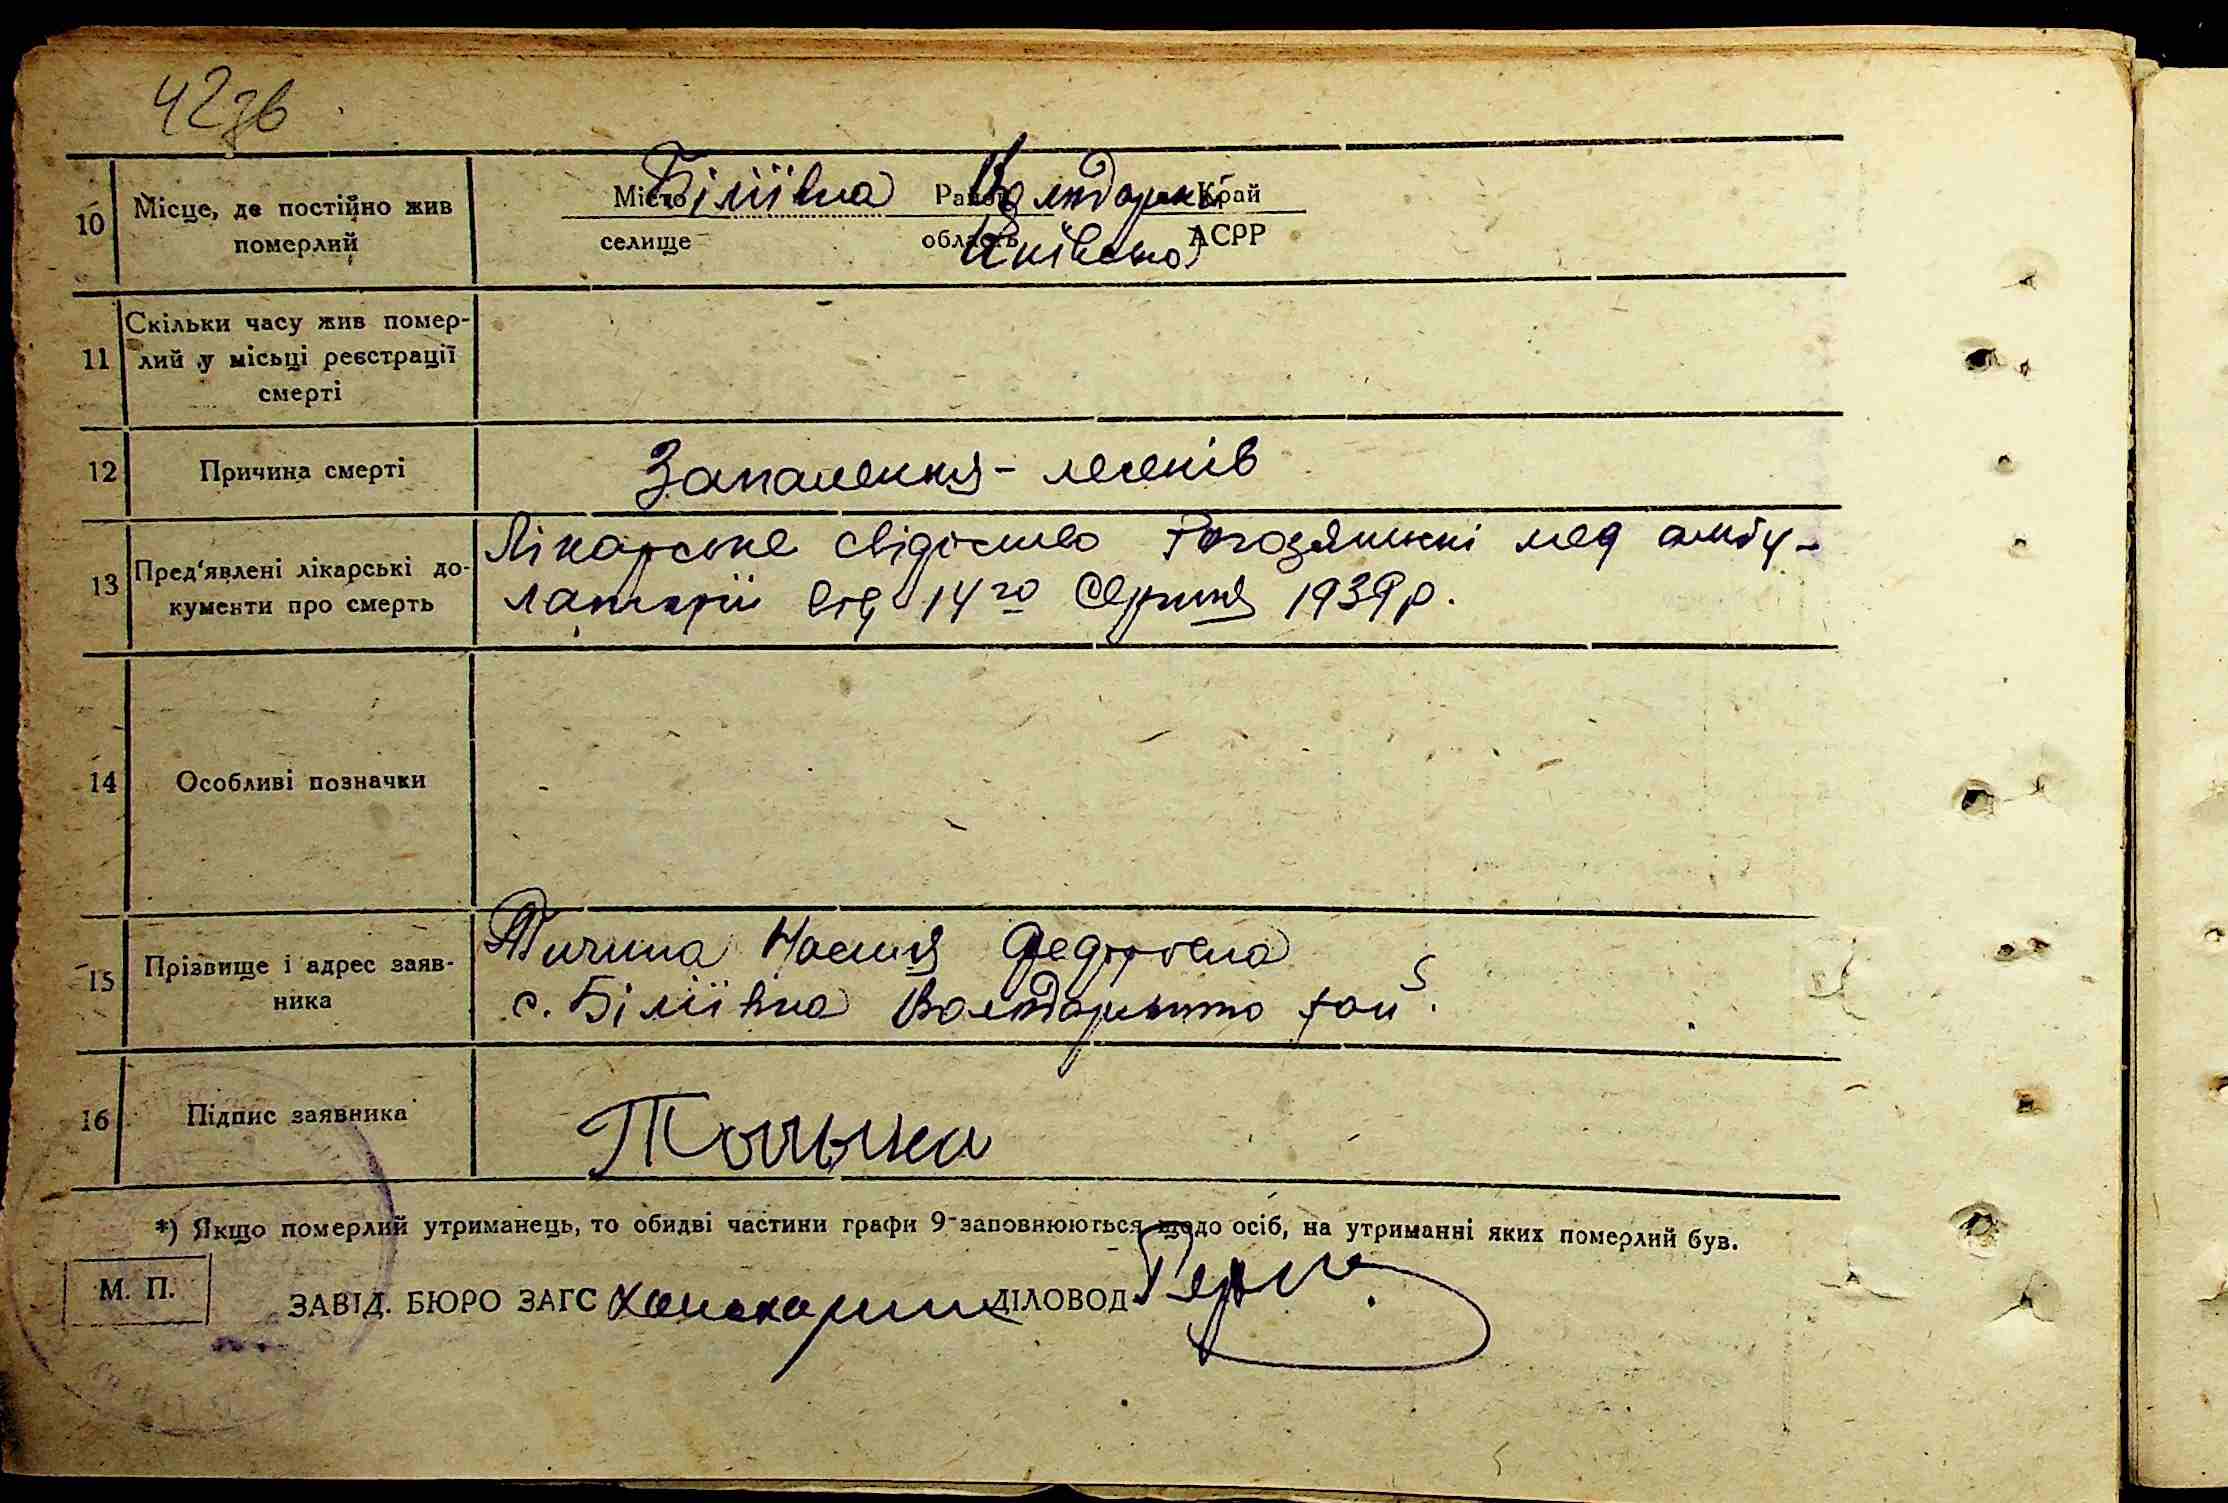 42зв
10 Місце, де постійно жив померлий
Місто Біліївка Район Володарськ Край
селище область Київська АСРР
11 Скільки часу жив помер-
лий у місьці реєстрації
смерті
12 Причина смерті Запалення - легенів
13 Пред'явлені лікарські до-
кументи про смерть
Лікарське свідоство мед амбу-
латорії від 14го Серпня 1939 р.
14 Особливі позначки
15 Прізвище і адрес заяв-
ника
Тичина Настя Федорівна
с. Біліївка рай.
16 Підпис заявника
*) Якщо померлий утриманець, то обидві частини графи 9 заповнюються щодо осіб, на утриманні яких померлий був.
М. П.
ЗАВІД. БЮРО ЗАГС ДІЛОВОД